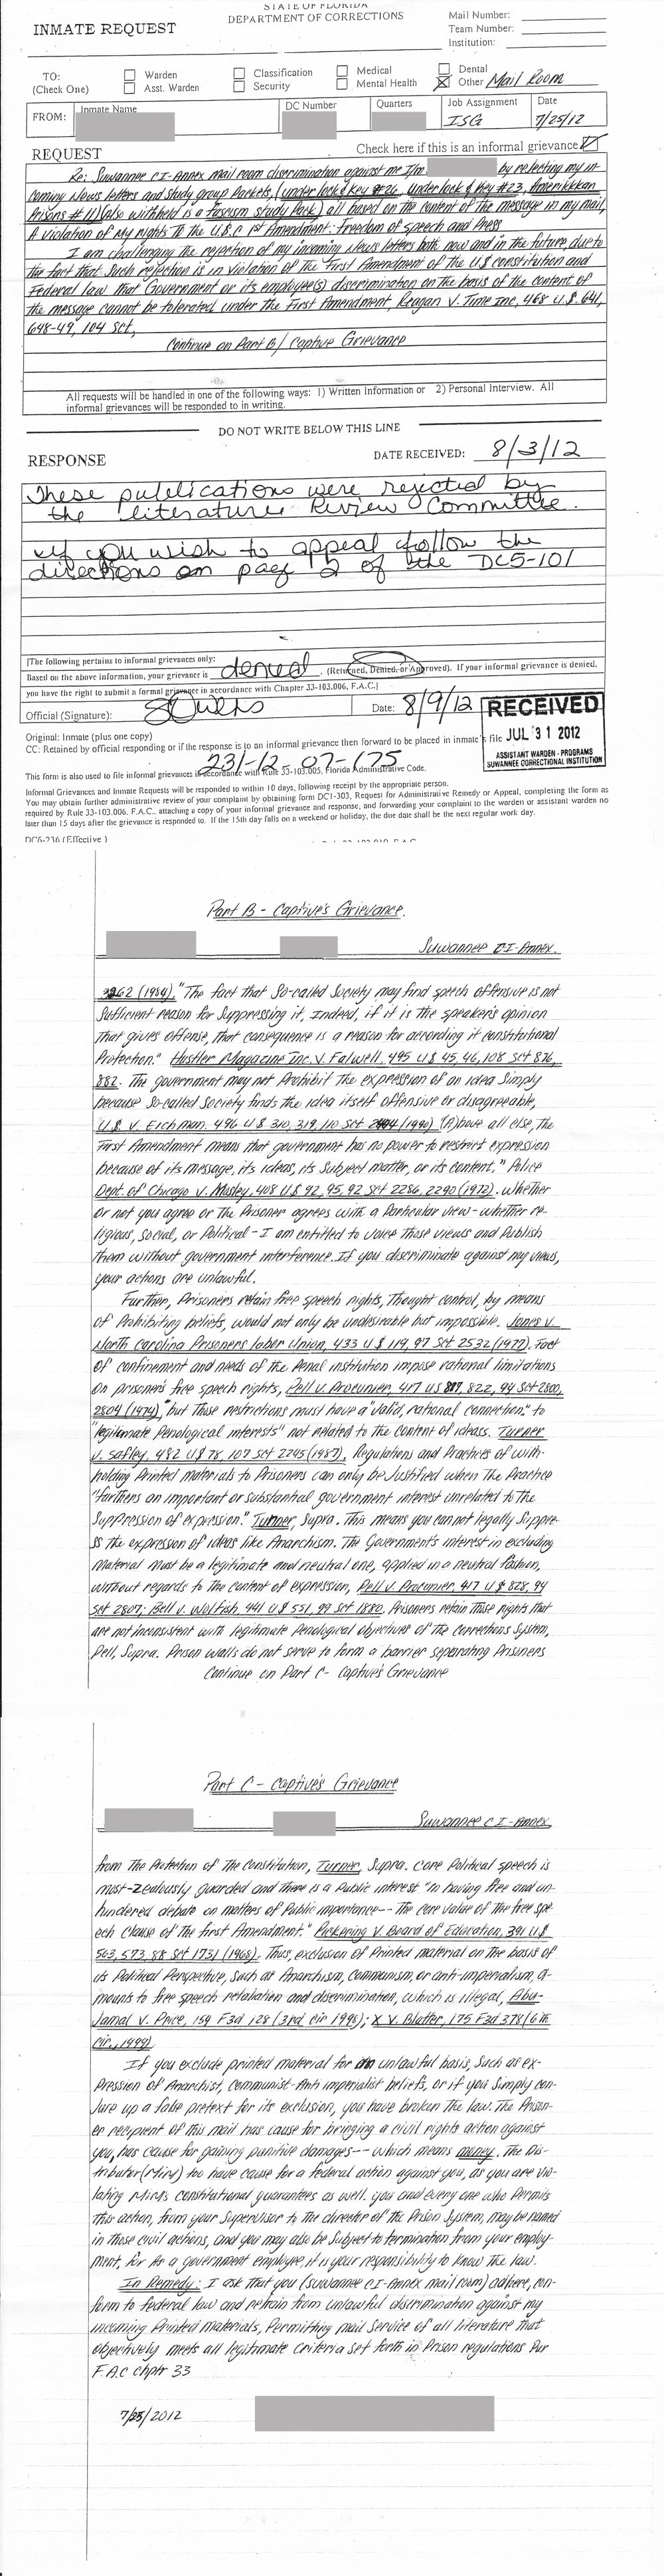 STATE OF FLORIDA
DEPARTMENT OF CORRECTIONS
INMATE REQUEST
Mail Number:
Team Number:
Institution:
TO: Warden Classification Medical Dental
(Check One) Asst. Warden Security Mental Health Other Mail Room
FROM: Inmate Name DC Number Quarters Job Assignment Date
ISG 7/25/12
REQUEST Check here if this is an informal grievance
Re: Suwannee CI-Annex mail room discrimination against me I/m by rejecting my in-
coming News letters and study group Packets, (under lock & Key #26, Under lock & Key #23, Amerikkkan
Prisons #11) (also withheld is a Fascism study Pack) all based on the content of the message in my mail,
A violation of my rights To the U.S.C 1st Amendment: Freedom of speech and Press
I am challenging the rejection of my incoming News letters both now and in the future, due to
the fact that such rejection is in violation of the First Amendment of the U.S constitution and
Federal law that Government or its employee(s) discrimination on the basis of the content of
the message cannot be tolerated under the First Amendment, Reagan v. Time Inc, 468 U.S. 641,
648-49, 104 Sct,
Continue on Part B/ Captive Grievance
All requests will be handled in one of the following ways: 1) Written Information or 2) Personal Interview. All
informal grievances will be responded to in writing.
DO NOT WRITE BELOW THIS LINE
RESPONSE DATE RECEIVED: 8/3/12
These publications were rejected by
the literature Review Committee.
If you wish to appeal follow the
directions on page 2 of the DC5-101
[The following pertains to informal grievances only:
Based on the above information, your grievance is denied. (Returned, Denied, or Approved). If your informal grievance is denied,
you have the right to submit a formal grievance in accordance with Chapter 33-103.006, F.A.C.]
Official (Signature): S Owens Date: 8/9/12
RECEIVED
JUL 31 2012
ASSISTANT WARDEN - PROGRAMS
SUWANNEE CORRECTIONAL INSTITUTION
Original: Inmate (plus one copy)
CC: Retained by official responding or if the response is to an informal grievance then forward to be placed in inmate's file
231-12-07-175
This form is also used to file informal grievances in accordance with Rule 33-103.005, Florida Administrative Code.
Informal Grievances and Inmate Requests will be responded to within 10 days, following receipt by the appropriate person.
You may obtain further administrative review of your complaint by obtaining form DC1-303, Request for Administrative Remedy or Appeal, completing the form as
required by Rule 33-103.006, F.A.C., attaching a copy of your informal grievance and response, and forwarding your complaint to the warden or assistant warden no
later than 15 days after the grievance is responded to. If the 15th day falls on a weekend or holiday, the due date shall be the next regular work day.
DC6-236 (Effective )
Part B - Captive's Grievance.
Suwannee CI-Annex.
3262 (1984). "The fact that So-called Society may find speech offensive is not
Sufficient reason for Suppressing it, Indeed, if it is the speaker's opinion
that gives offense, that consequence is a reason for according it constitutional
Protection." Hustler Magazine Inc. v. Falwell, 495 U.S 45, 46, 108 Sct 876,
882. The government may not Prohibit The expression of an idea Simply
because So-called Society finds the idea itself offensive or disagreeable,
U.S v. Eichman. 496 U.S 310, 319, 110 Sct 2404 (1990) "(A)bove all else, The
First Amendment means that government has no power to restrict expression
because of its message, its ideas, its Subject matter, or its content," Police
Dept. of Chicago v. Mosley, 408 U.S 92, 95, 92 Sct 2286, 2290 (1972). Whether
or not you agree or The Prisoner agrees with a Particular view - whether re-
ligious, social, or Political - I am entitled to voice those views and Publish
them without government interference. If you discriminate against my views,
your actions are unlawful.
Further, Prisoners retain free speech rights, Thought control, by means
of Prohibiting beliefs, would not only be undesirable but impossible. Jones v.
North Carolina Prisoners labor Union, 433 U.S 119, 97 Sct 2532 (1977). Fact
of confinement and needs of the Penal institution impose rational limitations
on prisoner's free speech rights, Pell v. Procunier, 417 US 817, 822, 94 Sct 2800,
2804 (1974), "but Those restrictions must have a "valid, rational connection" to
"legitimate Penological interests" not related to the content of ideass. Turner
v. Safley, 482 U.S 78, 107 Sct 2245 (1987). Regulations and Practices of with-
holding Printed materials to Prisoners can only be Justified when The Practice
"farthers an important or substantial government interest unrelated to The
Suppression of expression." Turner, Supra. This means you can not legally Suppre-
ss the expression of ideas like Anarchism. The Government's interest in excluding
Material must be a legitimate and neutral one, applied in a neutral fashion,
without regards to The content of expression, Pell v. Procunier, 417 U.S 828, 94
Sct 2807; Bell v. Wolfish, 441 U.S 551, 99 Sct 1880. Prisoners retain Those rights that
are not inconsistent with legitimate Penological objectives of the Corrections System,
Pell, Supra. Prison walls do not serve to form a barrier separating Prisoners
Continue on Part C- Captive's Grievance
Part C - Captive's Grievance
Suwannee CI-Annex,
from The Protection of The Constitution, Turner, Supra. Core Political speech is
most-zealously guarded and There is a Public interest "in having free and un-
hindered debate on matters of Public importance-- The core value of The free spe-
ech Clause of The first Amendment." Pickering v. Board of Education, 391 U.S
563, 573, 88 Sct 1731 (1968). Thus, exclusion of Printed material on the basis of
its Political Perspective, such as Anarchism, Communism, or anti-imperialism, a-
mounts to free speech retaliation and discrimination, which is illegal, Abu-
Jamal v. Price, 154 F3d 128 (3rd cir 1998); X v. Blatter, 175 F3d 378 (6th
cir, 1999).
If you exclude printed material for an unlawful basis, Such as ex-
Pression of Anarchist, Communist-Anti imperialist beliefs, or if you Simply con-
Jure up a false pretext for its exclusion, you have broken The law. The Prison-
er recipient of this mail has cause for bringing a civil rights action against
you, has cause for gaining punitive damages -- which means money. The Dis-
tributor (MIM) too have cause for a federal action against you, as you are vio-
lating MIM's constitutional guarantees as well. you and every one who Permits
This action, from your Supervisor to the director of the Prison System, may be named
in those civil actions, and you may also be Subject to termination from your employ-
ment, for for a government employee, it is your responsibility to know The law.
In Remedy: I ask that you (Suwannee CI-Annex mail room) adhere, con-
form to federal law and refrain from unlawful discrimination against my
incoming Printed materials, Permitting mail Service of all literature That
objectively meets all legitimate criteria set forth in Prison regulations Pur
F.A.C chptr 33
7/25/2012